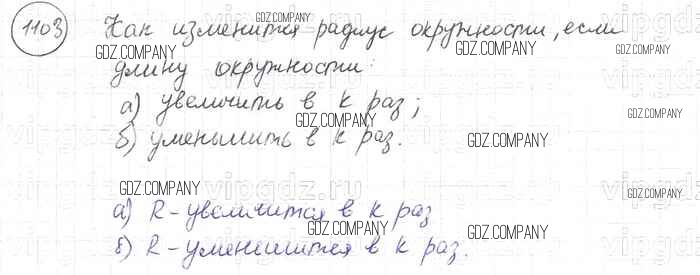 1103 Как изменится радиус окружности, если
длину окружности:
а) увеличить в k раз;
б) уменьшить в k раз.
а) R - увеличится в k раз
б) R - уменьшится в k раз.
GDZ.COMPANY
GDZ.COMPANY
GDZ.COMPANY
GDZ.COMPANY
GDZ.COMPANY
GDZ.COMPANY
GDZ.COMPANY
GDZ.COMPANY
GDZ.COMPANY
GDZ.COMPANY
GDZ.COMPANY
vipgdz.ru